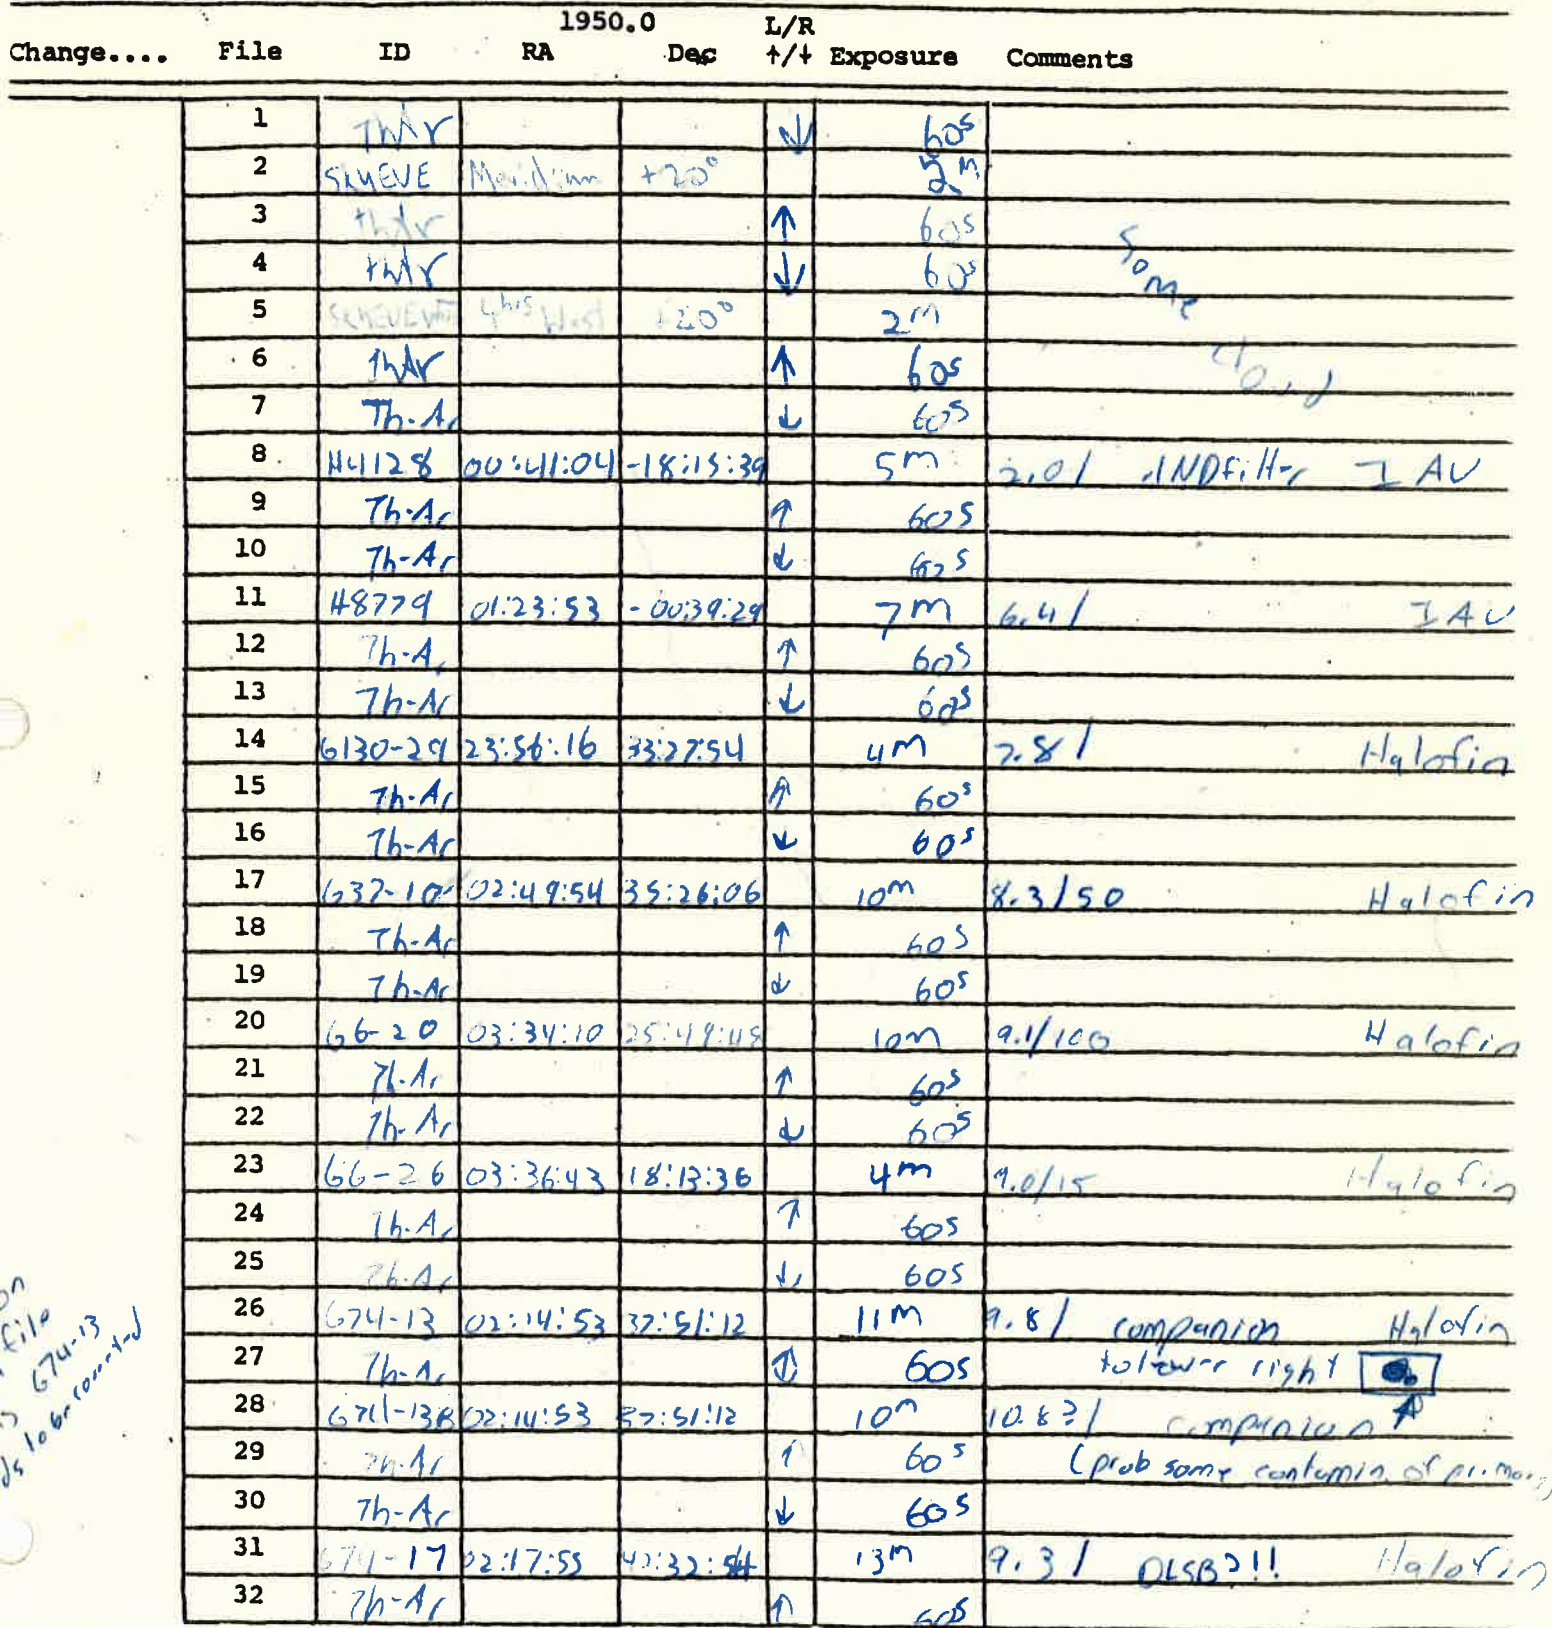 1950.0 L/R
Change.... File ID RA Dec ↑/↓ Exposure Comments
1 ThAr ↓ 60s
2 SKYEVE Meridian +20° 2m
3 thAr ↑ 60s
4 thAr ↓ 60s
Some
5 4hrs West +20° 2m
6 ThAr ↑ 60s
cloud
7 Th-Ar ↓ 60s
8 H4128 00:41:04 -18:15:39 5m 2.0/ .1NDfilter IAU
9 Th-Ar ↑ 60s
10 Th-Ar ↓ 60s
11 H8779 01:23:53 -00:39:29 7m 6.4/ IAU
12 Th-Ar ↑ 60s
13 Th-Ar ↓ 60s
14 G130-29 23:56:16 33:27:54 4m 7.8/ Halofin
15 Th-Ar ↑ 60s
16 Th-Ar ↓ 60s
17 G37-10 02:49:54 35:26:06 10m 8.3/50 Halofin
18 Th-Ar ↑ 60s
19 Th-Ar ↓ 60s
20 G6-20 03:34:10 25:49:48 10m 9.1/100 Halofin
21 Th-Ar ↑ 60s
22 Th-Ar ↓ 60s
23 G6-26 03:36:43 18:13:36 4m 9.0/15 Halofin
24 Th-Ar ↑ 60s
25 Th-Ar ↓ 60s
26 G74-13 02:14:53 37:51:12 11m 9.8/ companion Halofin
27 Th-Ar ↑ 60s to lower right
28 G74-13B 02:14:53 37:51:12 10m 10.8?/ companion
29 Th-Ar ↑ 60s (prob some contamin. of primary)
30 Th-Ar ↓ 60s
31 G74-17 02:17:55 42:32:54 13m 9.3/ DLSB?!! Halofin
32 Th-Ar ↑ 60s
on
file
G74-13
to be corrected